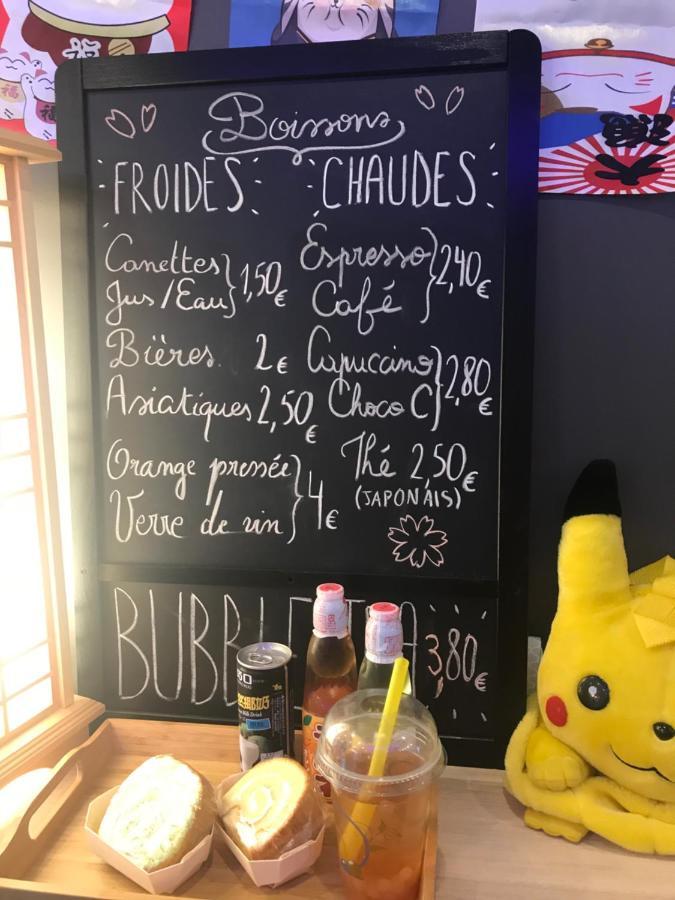 Boissons
FROIDES
Canettes
Jus/Eau } 1,50€
Bières 2€
Asiatiques 2,50€
Orange pressée
Verre de vin } 4€
CHAUDES
Espresso
Café } 2,40€
Capuccino
Choco C } 2,80€
Thé 2,50€
(JAPONAIS)
3,80€
福
福